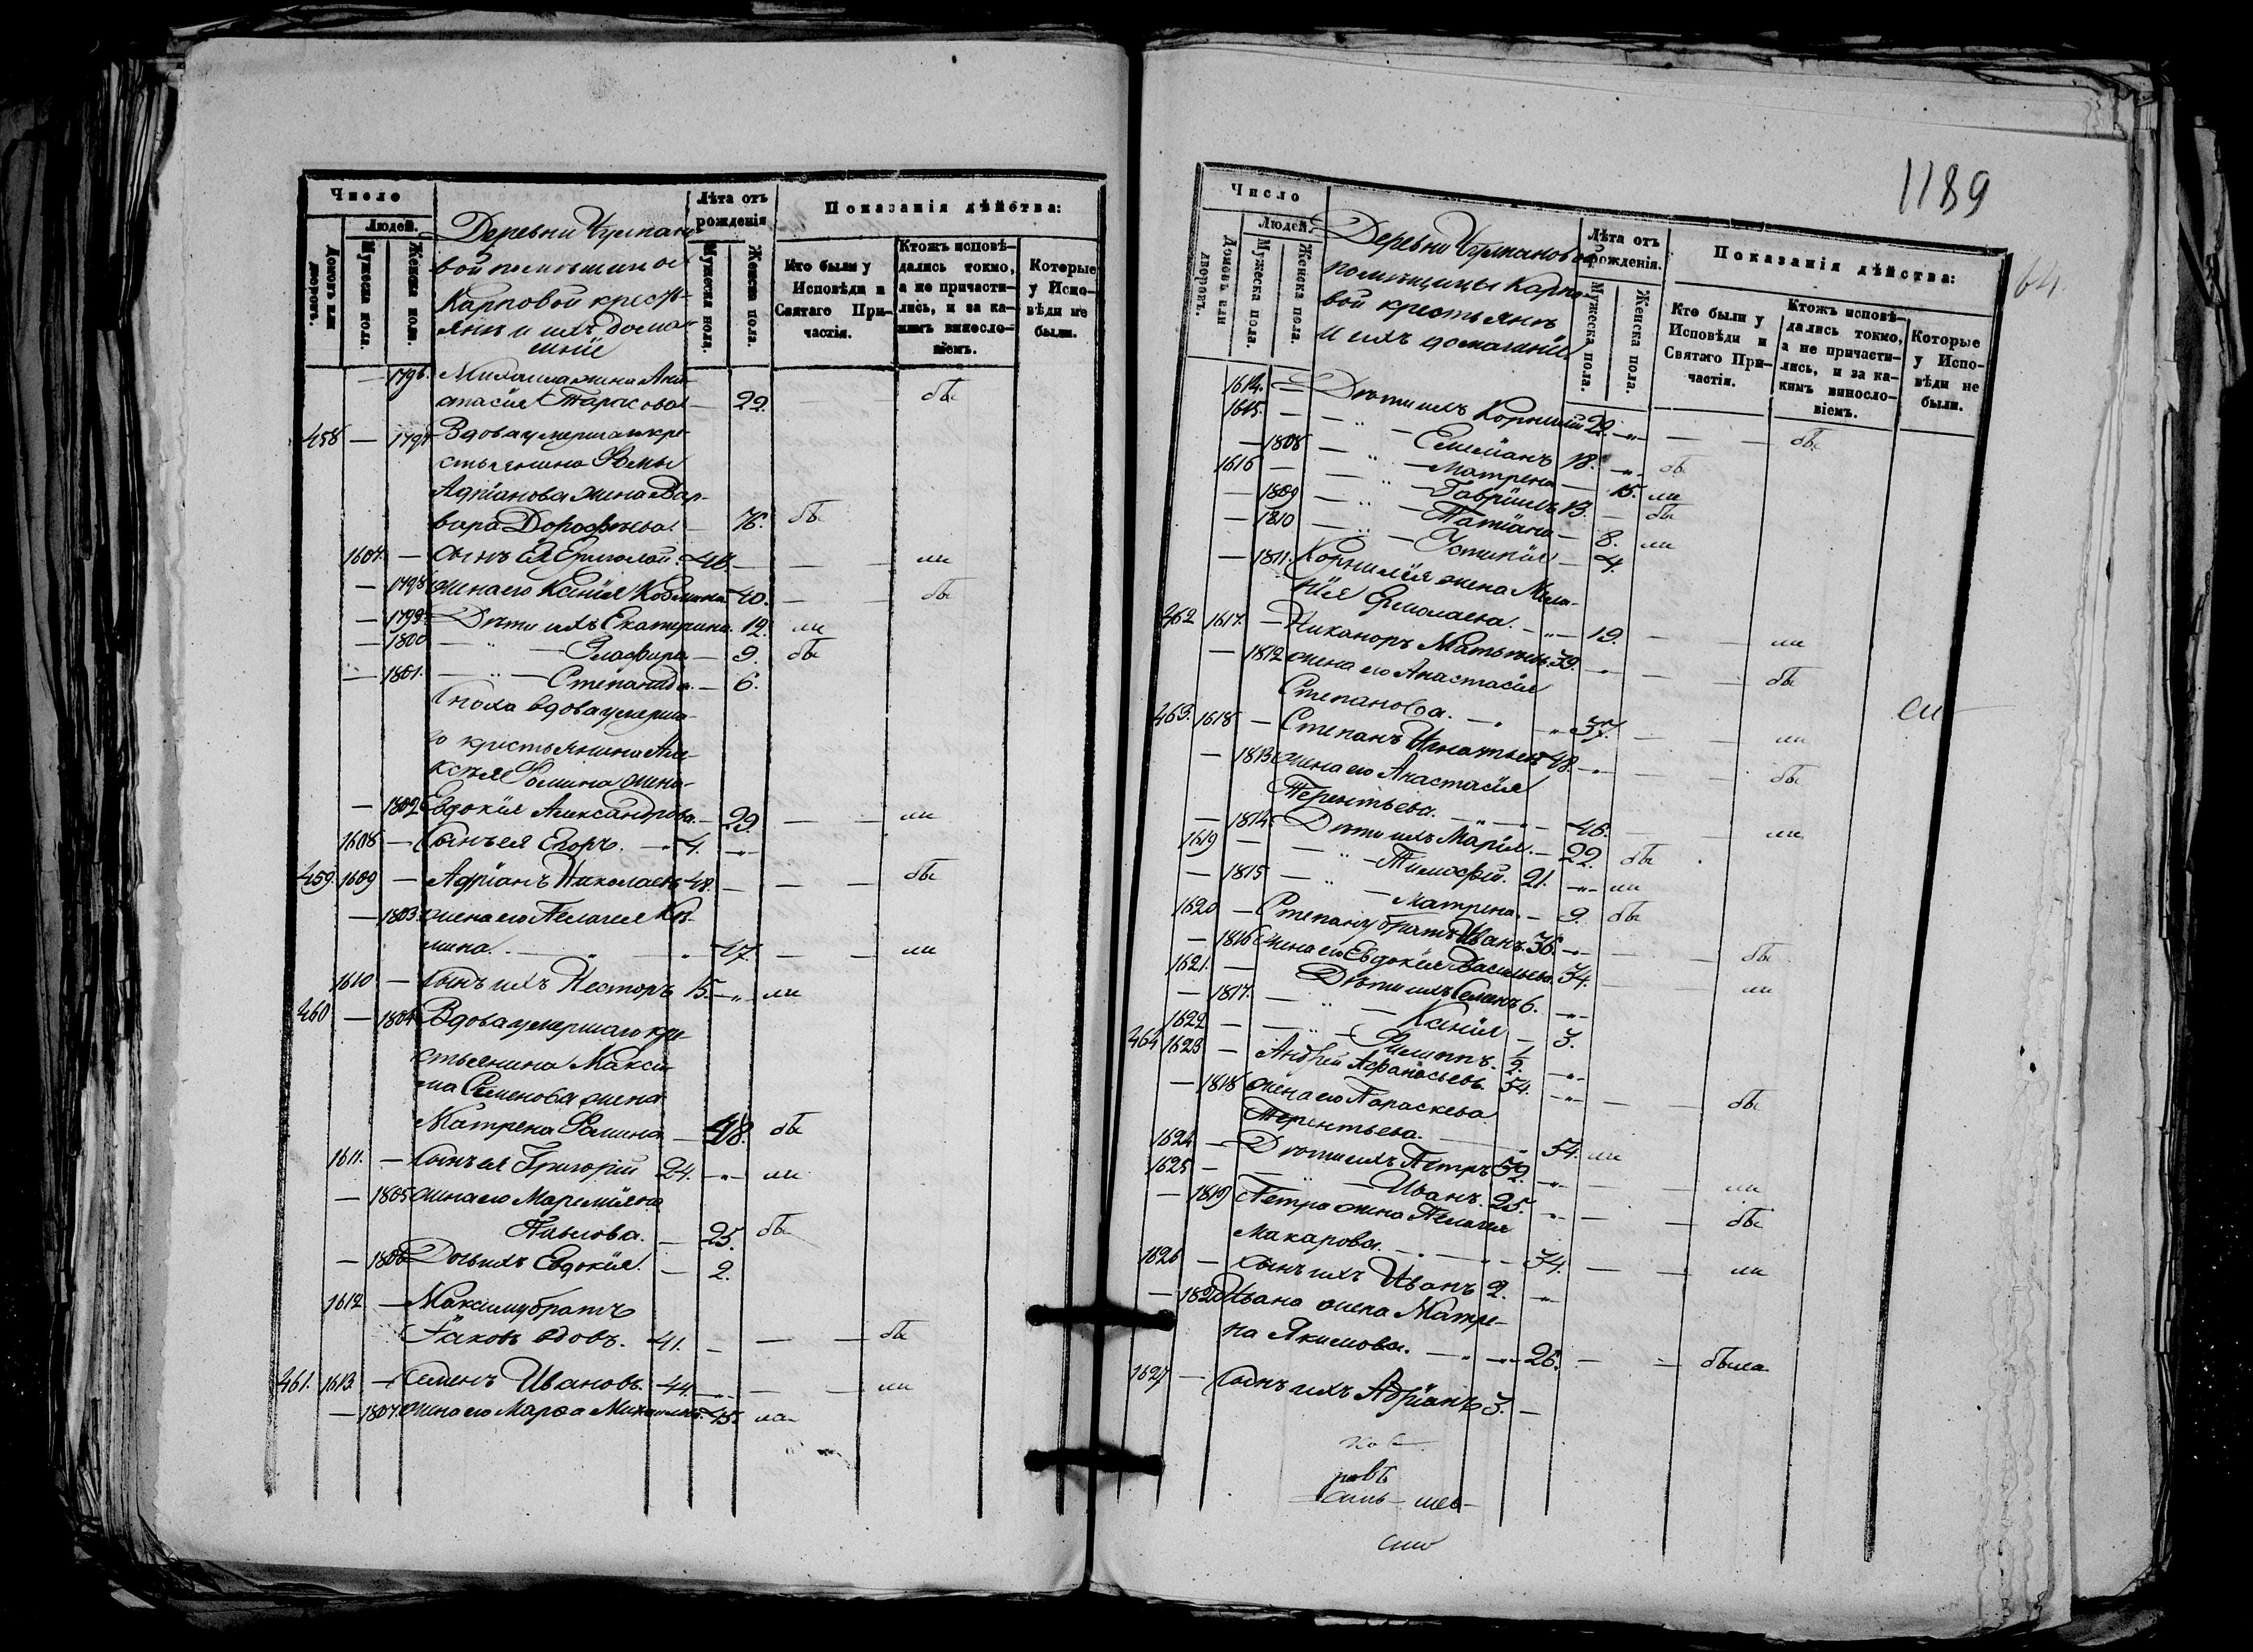 Число
Людей.
Домовъ или дворовъ.
Мужеска пола.
Женска пола.
Деревни Чулпано-
вой помѣщицы
Карповой кресть-
янъ и ихъ домаш-
нiе
Лѣта отъ рожденія
Мужеска пола.
Женска пола.
Показанія дѣйства:
Кто были у Исповѣди и Святаго Причастія.
Ктожъ исповѣдались токмо, а не причастились, и за какимъ винословіемъ.
Которые у Исповѣди не были.
— 1796. Михаила жена Ана-
стасія Тарасова — 22. — — бы
458 — 1797 Вдова умершаго кре-
стьянина Фомы
Адріанова жена Вар-
вара Дорофѣева. — 76. бы
1607. — Сынъ ея Ермолай. 48. — — — ли
— 1798 жена его Ксенія Козмина. 40. — — бы
— 1799. Дѣти ихъ Екатерина. 12. ли
— 1800 — „ — Гласфира — 9. бы
— 1801. — „ — Степанида. — 6.
Сноха вдова умерша-
го крестьянина Але-
ксѣя Фомина жена
— 1802 Евдокія Александрова. — 29. — — ли
1608 — Сынъ ея Егоръ. — 4. — „ —
459. 1609 — Адріанъ Николаевъ 48. — — — бы
— 1803. жена его Пелагея Ку-
мина. — „ — 47. — — ли
1610 — Сынъ ихъ Несторъ 15. — „ — ли
460 — 1804 Вдова умершаго кре-
стьянина Макси-
ма Семенова жена
Матрена Фомина — 48. бы
1611. — Сынъ ея Григорій 24. — „ — ли
— 1805 жена его Маремiяна
Павлова. — 25. бы
— 1806 Дочь ихъ Евдокія. — 2.
1612 — Максиму братъ
Іаковъ вдовъ. 41. — — — бы
461. 1613. — Семенъ Ивановъ. 44. — „ — — — ли
— 1807. жена его Марѳа Михайлова. 45. ла
1189
64
Число
Людей.
Домовъ или дворовъ.
Мужеска пола.
Женска пола.
Деревни Чулпановой
помѣщицы Карпо-
вой крестьянъ
и ихъ домашніе
Лѣта отъ рожденія.
Мужеска пола.
Женска пола.
Показанія дѣйства:
Кто были у Исповѣди и Святаго Причастія.
Ктожъ исповѣдались токмо, а не причастились, и за какимъ винословіемъ.
Которые у Исповѣди не были.
1614. — Дѣти ихъ Корнилій 22. — „ — — — бы
1615. — — „ — Емеліанъ 18. — „ — бы
— 1808 — „ — Матрена — 15. ли
1616 — — „ — Гавріилъ 13. — бы
— 1809 — „ — Татіана — 8. ли
— 1810 — „ — Устинія — 4.
— 1811. Корнилія жена Мела-
нія Ермолаева. — „ — 19. — — ли
462 1617. — Никаноръ Матвѣевъ. 39. — „ — — — бы
— 1812 жена его Анастасія
Степанова. — „ — 37. — — ли
463. 1618 — Степанъ Игнатьевъ 48. — „ — — — бы
— 1813 жена его Анастасія
Терентьева. — „ — 46. — — ли
— 1814. Дѣти ихъ Марія. — 22. бы
1619 — — „ — Тимофей. 21. — „ — ли
— 1815 — „ — Матрена. — 9. бы
1620 — Степану братъ Иванъ. 36. — „ — — — бы
— 1816 жена его Евдокія Васильева. 34. — — ли
1621. — Дѣти ихъ Семенъ 6. — „ —
— 1817. — „ — Ксенія — 3.
1622 — — „ — Филиппъ. 1/2. — „ —
464 1623 — Андрей Афанасьевъ. 54. — „ — — — бы
— 1818 жена его Параскева
Терентьева. — „ 54. ли
1624 — Дѣти ихъ Петръ 32. — „ — — — ли
1625 — — „ — Иванъ. 25. — „ — — — бы
— 1819 Петра жена Пелагея
Макарова. — „ — 34. — — ли
1626 — Сынъ ихъ Иванъ 2. — „ —
— 1820 Ивана жена Матре-
на Якимова. — „ — 26. — — была
1627 — Сынъ ихъ Адріанъ 3. —